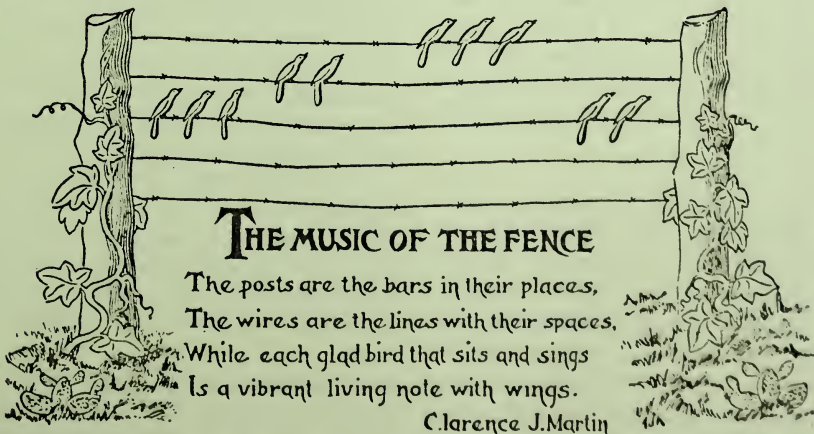 THE MUSIC OF THE FENCE
The posts are the bars in their places,
The wires are the lines with their spaces,
While each glad bird that sits and sings
Is a vibrant living note with wings.
Clarence J. Martin